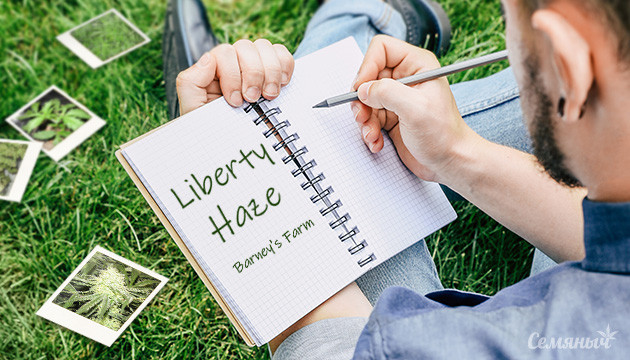 Liberty
Haze
Barney's Farm
Семяныч